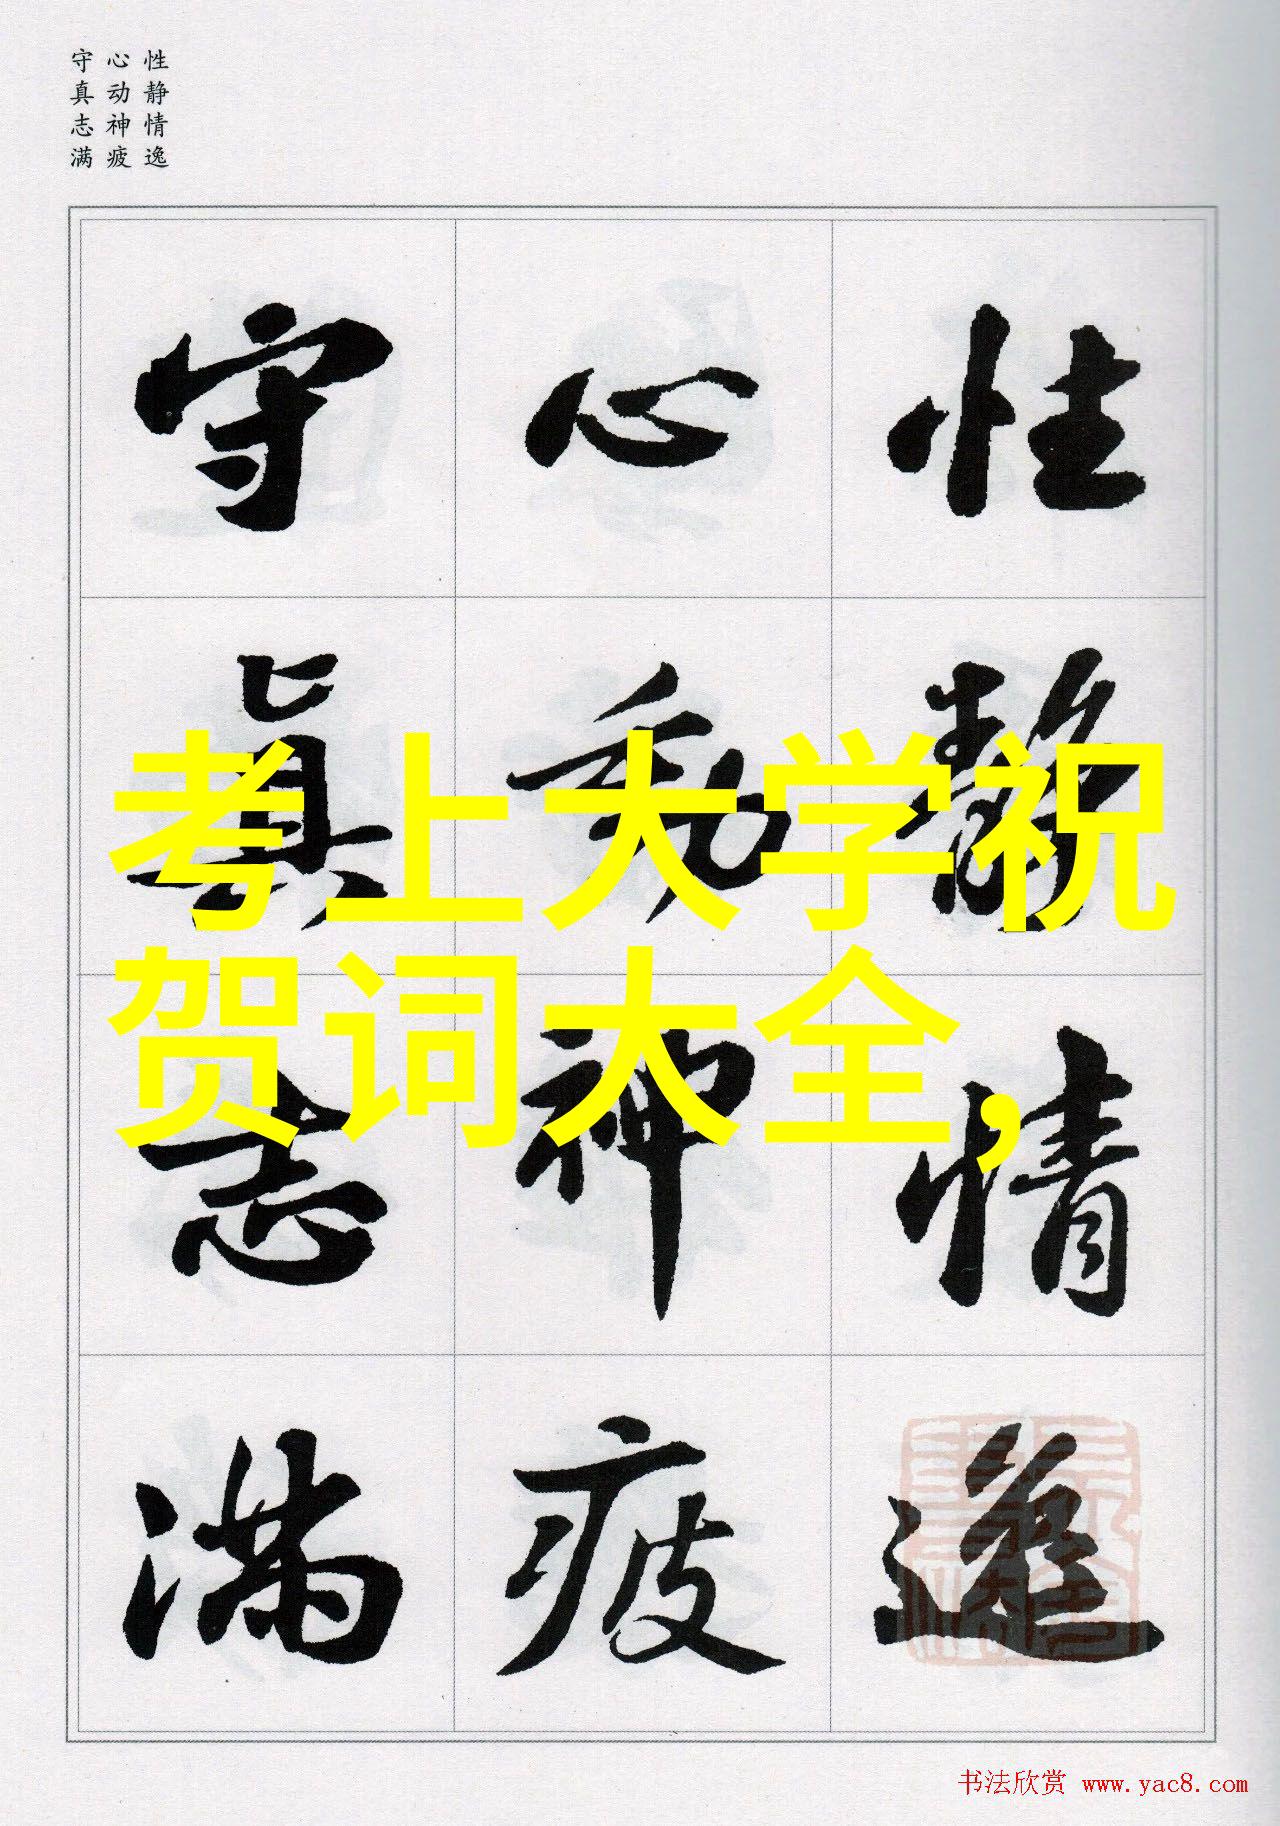 性静情逸
心动神疲
守真志满
性静情逸
心動神疲
守真志满
考上大学祝
贺词大全,
书法欣赏 www.yac8.com